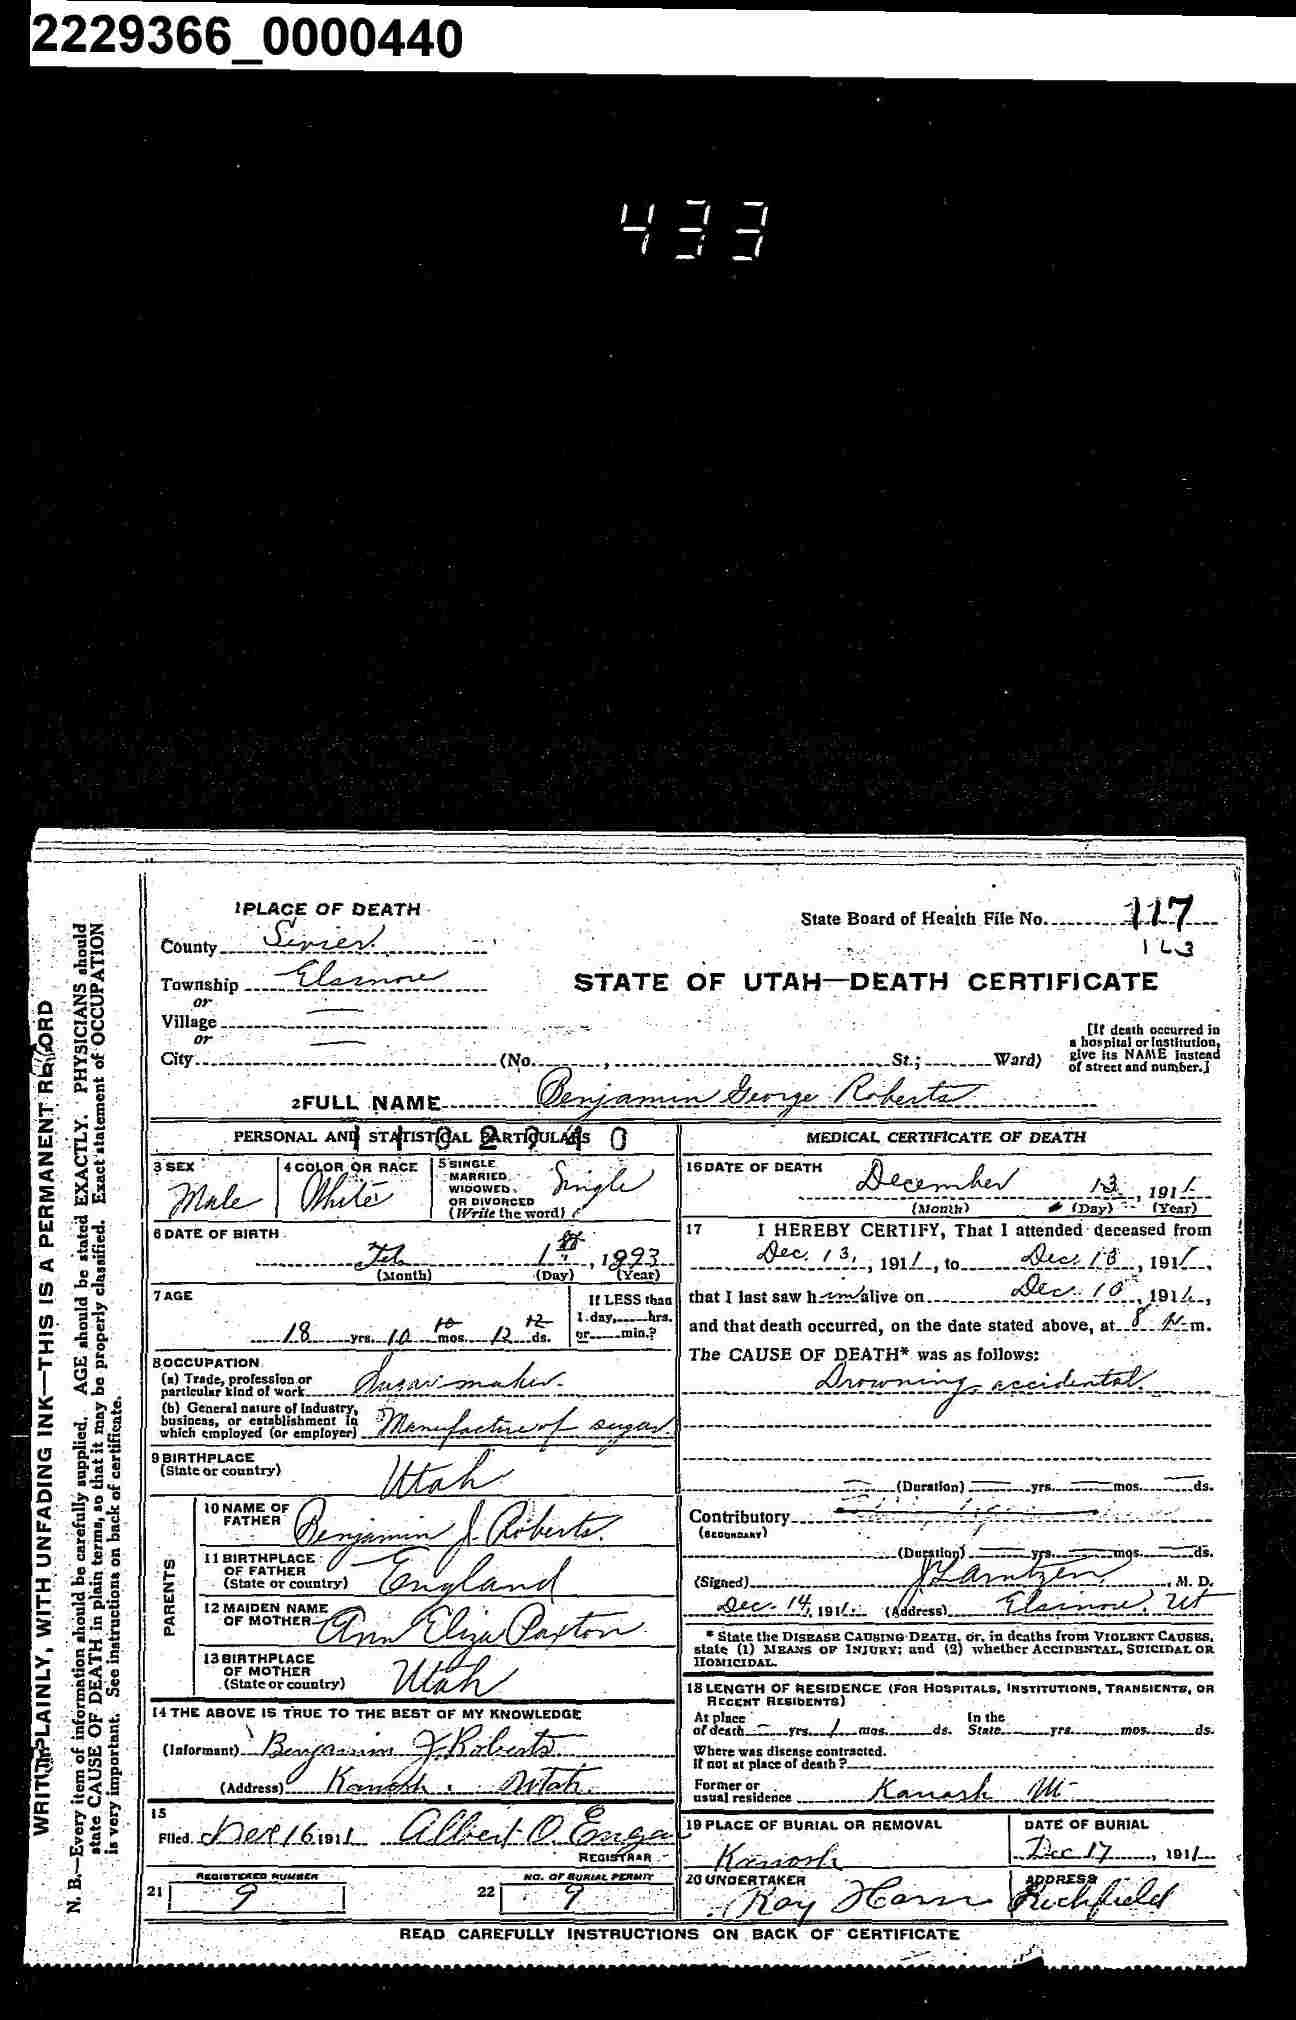 2229366_0000440
433
WRITE PLAINLY, WITH UNFADING INK—THIS IS A PERMANENT RECORD
N. B.—Every item of information should be carefully supplied. AGE should be stated EXACTLY. PHYSICIANS should
state CAUSE OF DEATH in plain terms, so that it may be properly classified. Exact statement of OCCUPATION
is very important. See instructions on back of certificate.
1 PLACE OF DEATH
State Board of Health File No. 117
163
County Sevier
Township Elsinore
STATE OF UTAH—DEATH CERTIFICATE
or
Village —
or
City — (No. , St.; Ward)
[If death occurred in
a hospital or institution,
give its NAME instead
of street and number.]
2 FULL NAME Benjamin George Roberts
PERSONAL AND STATISTICAL PARTICULARS
MEDICAL CERTIFICATE OF DEATH
3 SEX
Male
4 COLOR OR RACE
White
5 SINGLE
MARRIED
WIDOWED
OR DIVORCED
(Write the word)
Single
6 DATE OF BIRTH
Feb 1st, 1893
(Month) (Day) (Year)
7 AGE
18 yrs. 10 mos. 12 ds.
10 12
If LESS than
1 day, hrs.
or min.?
8 OCCUPATION
(a) Trade, profession or
particular kind of work Sugar maker
(b) General nature of Industry,
business, or establishment in
which employed (or employer) Manufacture of sugar.
9 BIRTHPLACE
(State or country) Utah
PARENTS
10 NAME OF
FATHER Benjamin J. Roberts.
11 BIRTHPLACE
OF FATHER
(State or country) England
12 MAIDEN NAME
OF MOTHER Ann Eliza Paxton
13 BIRTHPLACE
OF MOTHER
(State or country) Utah
14 THE ABOVE IS TRUE TO THE BEST OF MY KNOWLEDGE
(Informant) Benjamin J. Roberts
(Address) Kanosh, Utah
15
Filed Dec 16 1911 Albert O.
REGISTRAR
REGISTERED NUMBER
21 9
NO. OF BURIAL PERMIT
22 9
16 DATE OF DEATH
December 13, 1911
(Month) (Day) (Year)
17 I HEREBY CERTIFY, That I attended deceased from
Dec. 13, 1911, to Dec. 13, 1911,
that I last saw him alive on Dec. 1911,
and that death occurred, on the date stated above, at 8 P. m.
The CAUSE OF DEATH* was as follows:
Drowning accidental
(Duration) yrs. mos. ds.
Contributory
(SECONDARY)
(Duration) yrs. mos. ds.
(Signed) , M. D.
Dec. 14, 1911. (Address) Elsinore, Ut
* State the DISEASE CAUSING DEATH, or, in deaths from VIOLENT CAUSES,
state (1) MEANS OF INJURY; and (2) whether ACCIDENTAL, SUICIDAL OR
HOMICIDAL.
18 LENGTH OF RESIDENCE (FOR HOSPITALS, INSTITUTIONS, TRANSIENTS, OR
RECENT RESIDENTS)
At place In the
of death — yrs. 1 mos. ds. State yrs. mos. ds.
Where was disease contracted.
If not at place of death?
Former or
usual residence Kanosh Ut
19 PLACE OF BURIAL OR REMOVAL
Kanosh
DATE OF BURIAL
Dec 17, 1911
20 UNDERTAKER
Ray
ADDRESS
Richfield
READ CAREFULLY INSTRUCTIONS ON BACK OF CERTIFICATE